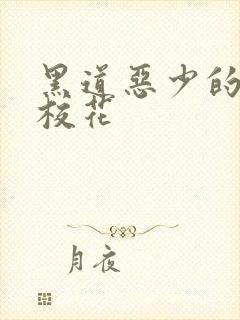 黑道惡少的
校花
月夜